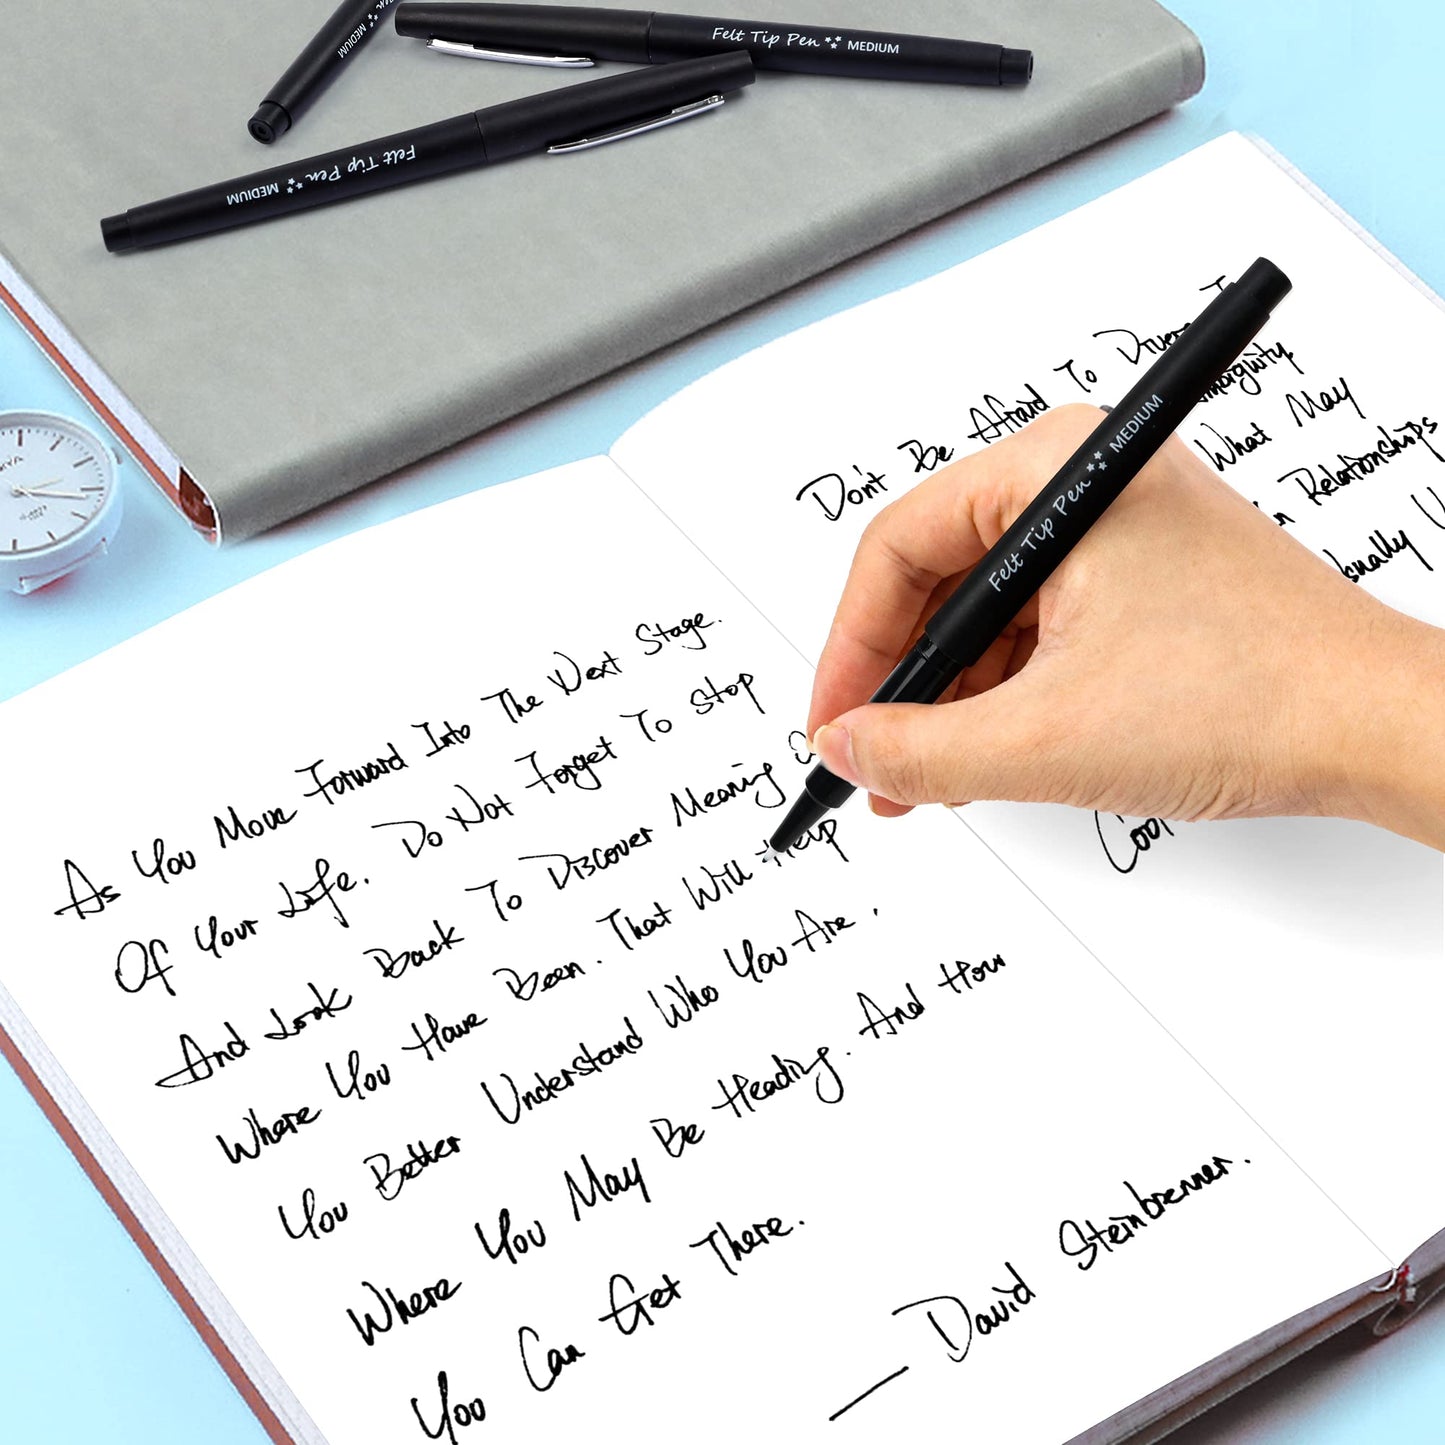 Felt Tip Pen MEDIUM
Felt Tip Pen MEDIUM
MEDIUM
Felt Tip Pen MEDIUM
As You Move Forward Into The Next Stage.
Of Your Life. Do Not Forget To Stop
And Look Back To Discover Meaning
Where You Have Been. That Will Help
You Better Understand Who You Are.
Where You May Be Heading. And How
You Can Get There.
— David Steinbrenner.
Don't Be Afraid To
What May
Relationships